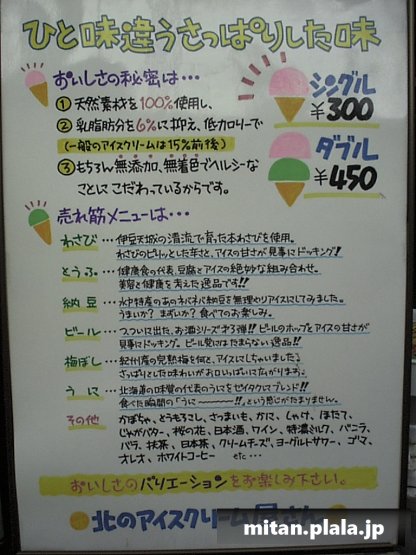 ひと味違うさっぱりした味
おいしさの秘密は…
① 天然素材を100%使用し、
② 乳脂肪分を6%に抑え、低カロリーで
(一般のアイスクリームは15%前後)
③ もちろん無添加、無着色でヘルシーな
ことにこだわっているからです。
シングル
¥300
ダブル
¥450
売れ筋メニューは…
わさび…伊豆天城の清流で育った本わさびを使用。
わさびのピリッとした辛さと、アイスの甘さが見事にドッキング!!
とうふ…健康食の代表、豆腐とアイスの絶妙な組み合わせ。
美容と健康を考えた逸品です!!
納豆…水戸特産のあのネバネバ納豆を無理やりアイスにしてみました。
うまいか?まずいか?食べてのお楽しみ。
ビール…ついに出た、お酒シリーズ第3弾!!ビールのホップとアイスの甘さが
見事にドッキング。ビール党にはたまらない逸品!!
梅ぼし…紀州産の完熟梅を何と、アイスにしちゃいました?
さっぱりとした味わいがお口いっぱいに広がります。
うに…北海道の味覚の代表のうにをゼイタクにブレンド!!
食べた瞬間の「うに〜〜〜!!」という感じがたまりません。
その他 かぼちゃ、とうもろこし、さつまいも、かに、しゃけ、ほたて、
じゃがバター、桜の花、日本酒、ワイン、特濃ミルク、バニラ、
バラ、抹茶、日本茶、クリームチーズ、ヨーグルトサワー、ゴマ、
オレオ、ホワイトコーヒー etc…
おいしさのバリエーションをお楽しみ下さい。
北のアイスクリーム屋さん
mitan.plala.jp